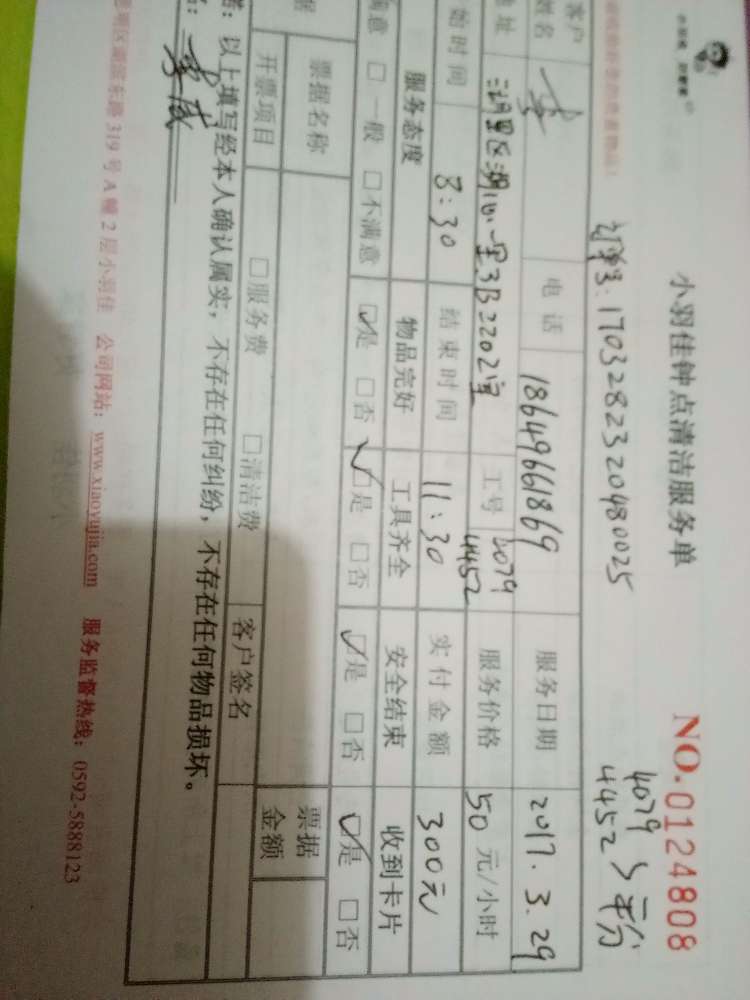 小羽佳钟点清洁服务单
NO.0124808
订单号:1703282320480025
4079
4452 > 平分
客户姓名 李 电话 18649661869 服务日期 2017.3.29
地址 湖里区湖心一里33号2202室 工号 4079 4452 服务价格 50元/小时
始时间 8:30 结束时间 11:30 实付金额 300元
服务态度 物品完好 工具齐全 安全结束 收到卡片
满意 □一般 □不满意 ☑是 □否 ☑是 □否 ☑是 □否 ☑是 □否
据 票据名称 票据金额
开票项目 □服务费 □清洁费 客户签名
以上填写经本人确认属实,不存在任何纠纷,不存在任何物品损坏。
明区湖滨东路319号A幢2层小羽佳 公司网站:www.xiaoyujia.com 服务监督热线:0592-5888123